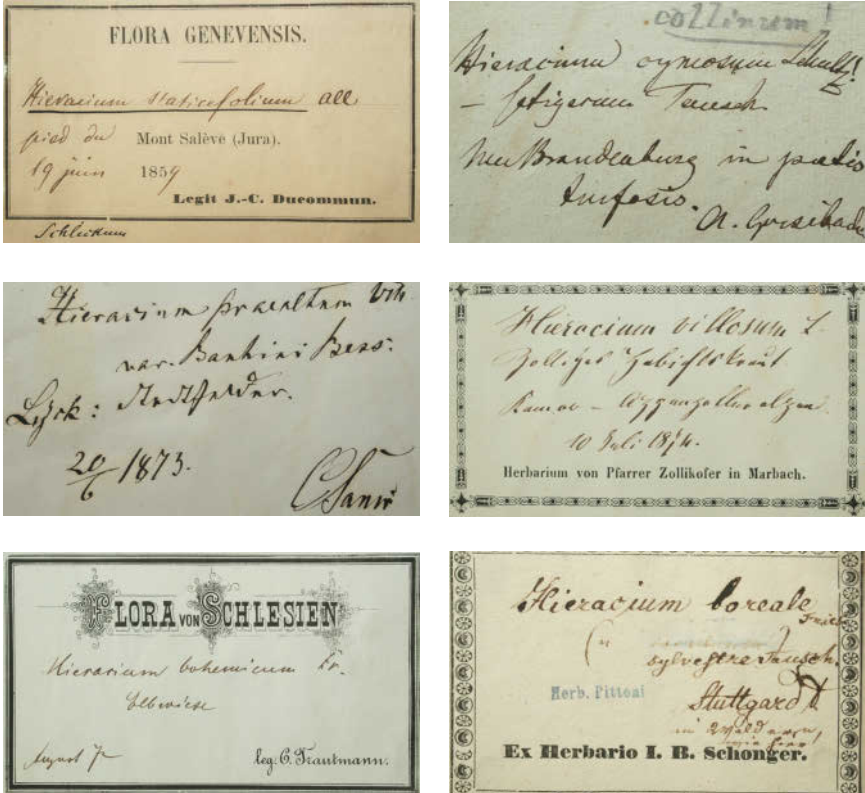 FLORA GENEVENSIS.
Hieracium staticefolium all.
pied du Mont Salève (Jura).
19 juin 1859
Legit J.-C. Ducommun.
collinum!
Hieracium cymosum Schultz!
– setigerum Tausch.
Neu Brandenburg in pratis
turfosis.
A. Grisebach
Hieracium praealtum Vill.
var. Bauhini Bess.
Lyck:
20/6 1873.
C Sanio
Hieracium villosum L.
Zottiges Habichtskraut
Kamor – Appenzelleralpen
10 Juli 1874.
Herbarium von Pfarrer Zollikofer in Marbach.
FLORA VON SCHLESIEN
Hieracium bohemicum Fr.
Elbwiese
August
leg. C. Trautmann.
Hieracium boreale Fries
sylvestre Tausch.
Herb. Pittoni
Stuttgard
in Wäldern,
Ex Herbario I. B. Schonger.